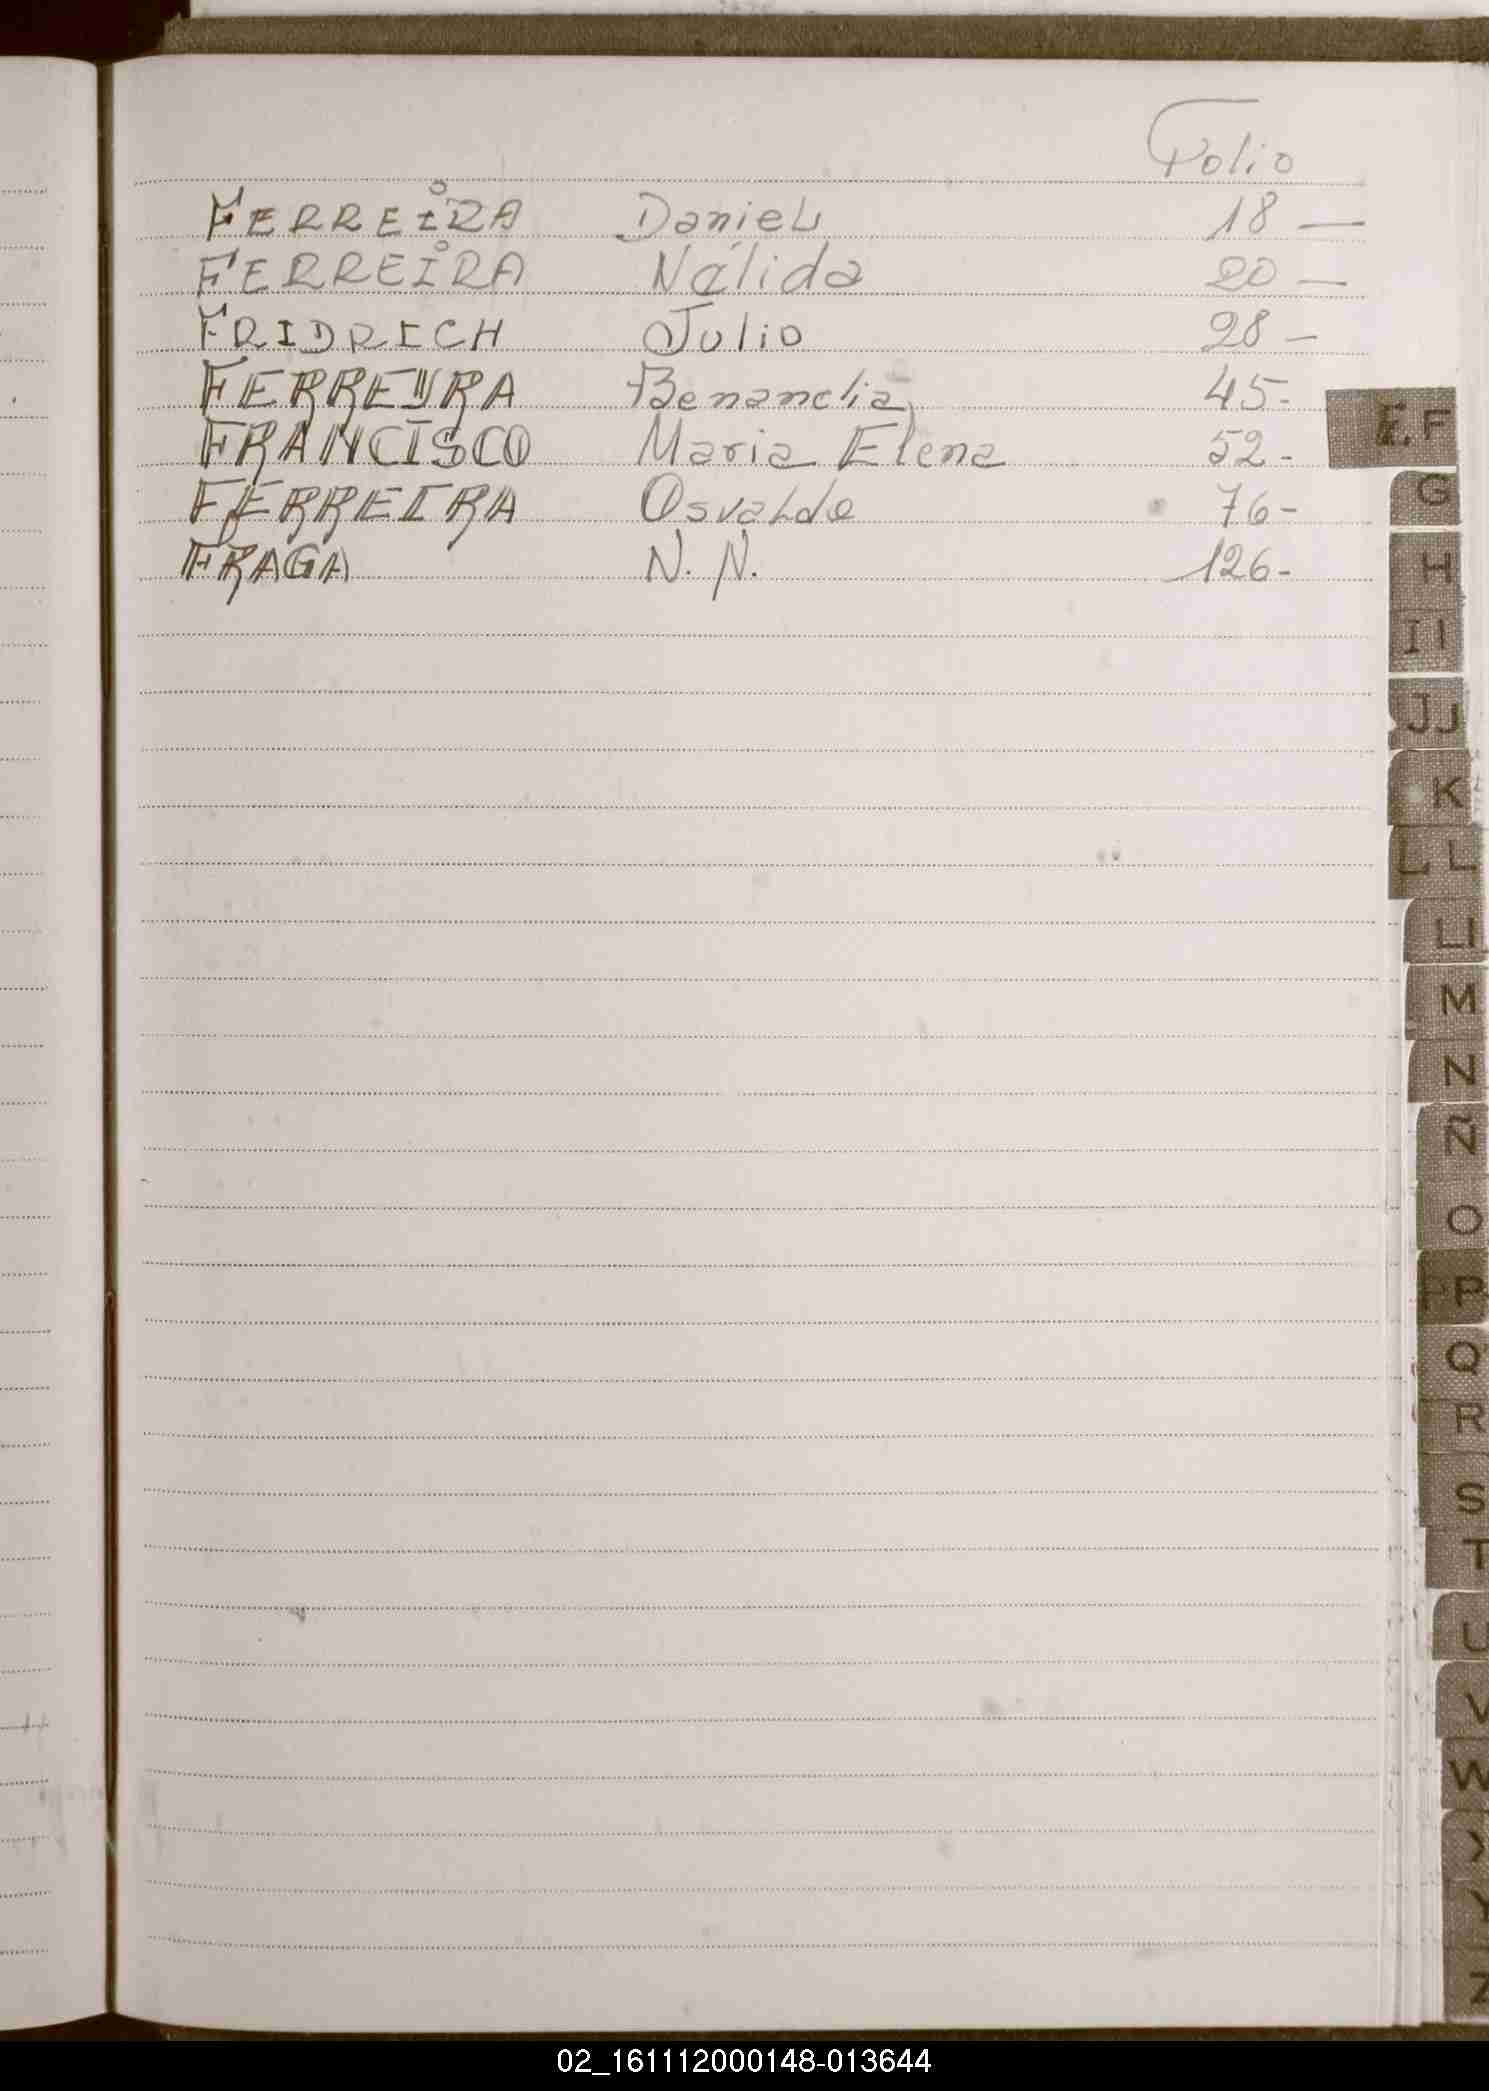 Folio
FERREIRA Daniel 18 —
FERREIRA Nélida 20 —
FRIDRICH Julio 28 —
FERREYRA Benanclia 45-
FRANCISCO Maria Elena 52-
FERREIRA Osvaldo 76-
FRAGA N. N. 126-
F. F
G
H
I I
J J
K
L L
Ll
M
N
Ñ
O
P P
Q
R
S
T
U
V
W
X
Y
Z
02_161112000148-013644